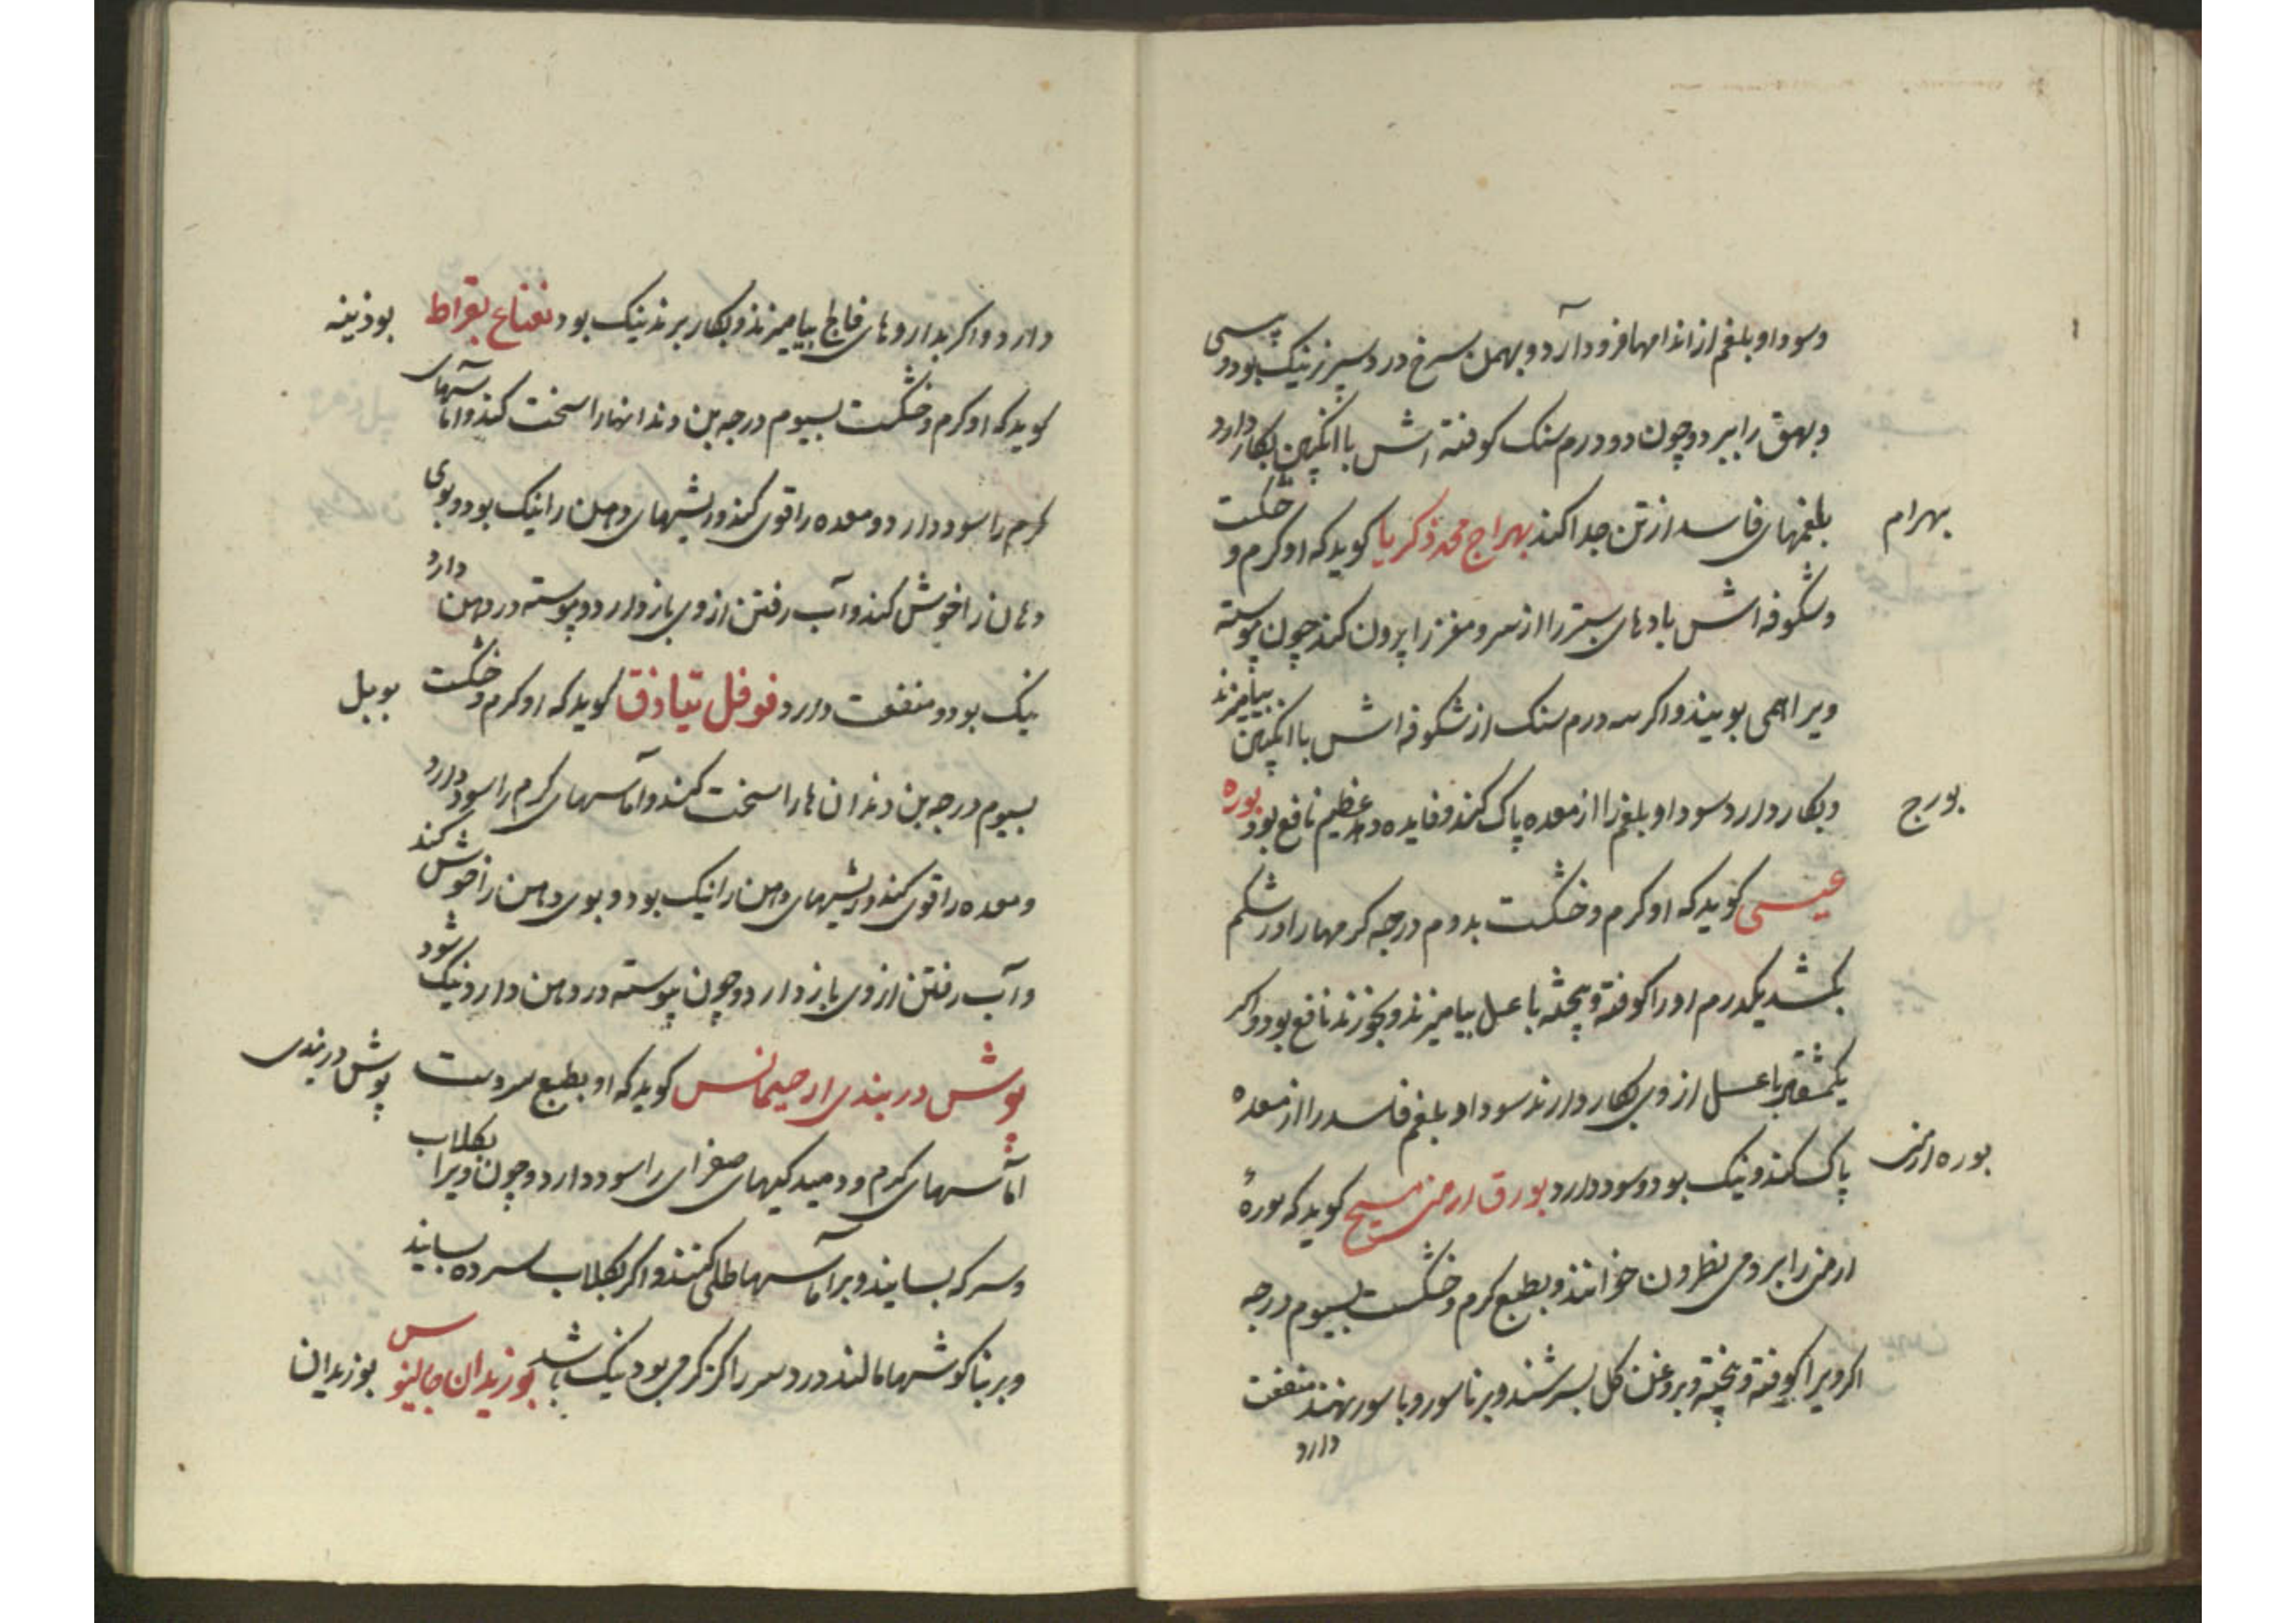 وسودا و بلغم از اندامها فرود آرد و بهمن سرخ درد سپرز نیک بود و پیسی
و بهق را ببرد و چون دو درم سنک کوفته اش با انکبین بکار دارد
بلغمهای فاسد از تن جدا کند بهراج محمد ذکریا کوید که او کرم و خشکست
بهرام
و شکوفه اش بادهای ستبر را از سر و مغز را بیرون کند چون پیوسته
ویرا همی بویند و اکر سه درم سنک از شکوفه اش با انکبین بیامیزند
و بکار دارد سودا و بلغم را از معده پاک کند و فایده دهد عظیم نافع بود بوره
بورج
عیسی کوید که او کرم و خشکست بدوم درجه کرمها را در شکم
بکشد یکدرم او را کوفته و پخته با عسل بیامیزند و بخورند نافع بود و اکر
یکمثقال با عسل از وی بکار دارند سودا و بلغم فاسد را از معده
پاک کند و نیک بود و سود دارد بورق ارمنی مسیح کوید که بورهٔ
بوره ارمنی
ارمنی را برومی نطرون خوانند و بطبع کرم و خشکست بسیوم درجه
اکر ویرا کوفته و پخته و بروغن کل بسرشند و بر ناسور و باسور نهند منفعت
دارد
دارد و اکر بداروهای فالج بیامیزند و بکار برند نیک بود نعناع بقراط
بوذینه
کوید که او کرم و خشکست بسیوم درجه بن دندانها را سخت کند و اماسهای
کرم را سود دارد و معده را قوی کند و ریشهای دهن را نیک بود و بوی
دهان را خوش کند و آب رفتن از وی باز دارد و پیوسته در دهن دارد
نیک بود و منفعت دارد فوفل تیاذق کوید که او کرم و خشکست
بوبل
بسیوم درجه بن دندان ها را سخت کند و آماسهای کرم را سود دارد
و معده را قوی کند و ریشهای دهن را نیک بود و بوی دهن را خوش کند
و آب رفتن از وی باز دارد و چون پیوسته در دهن دارد نیک شود
پوش دربندی ارجیجانس کوید که او بطبع سردست
پوش دربندی
اماسهای کرم و دمیدکیهای صفرای را سود دارد و چون ویرا بکلاب
و سرکه بسایند و بر آماسها طلی کنند و اکر بکلاب سرده بسایند
و بر بناکوشها مالند درد سر را کز کرمی بود نیک باشد بوزیدان جالینوس
بوزیدان